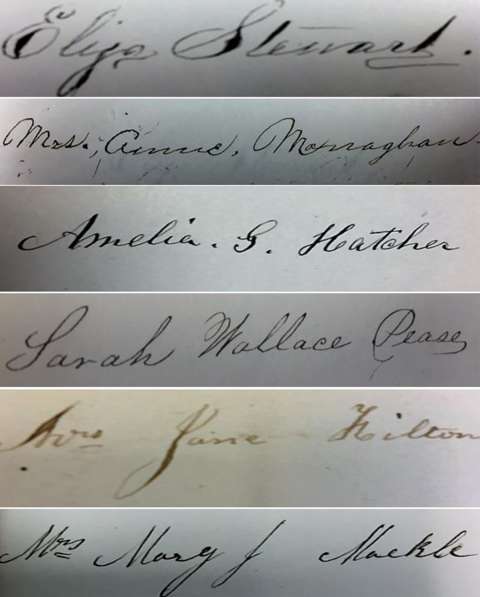 Eliza Stewart.
Mrs. Annie, Monaghan
Amelia. G. Hatcher
Sarah Wallace Pease
Mrs Jane Hilton
Mrs Mary J Mackle